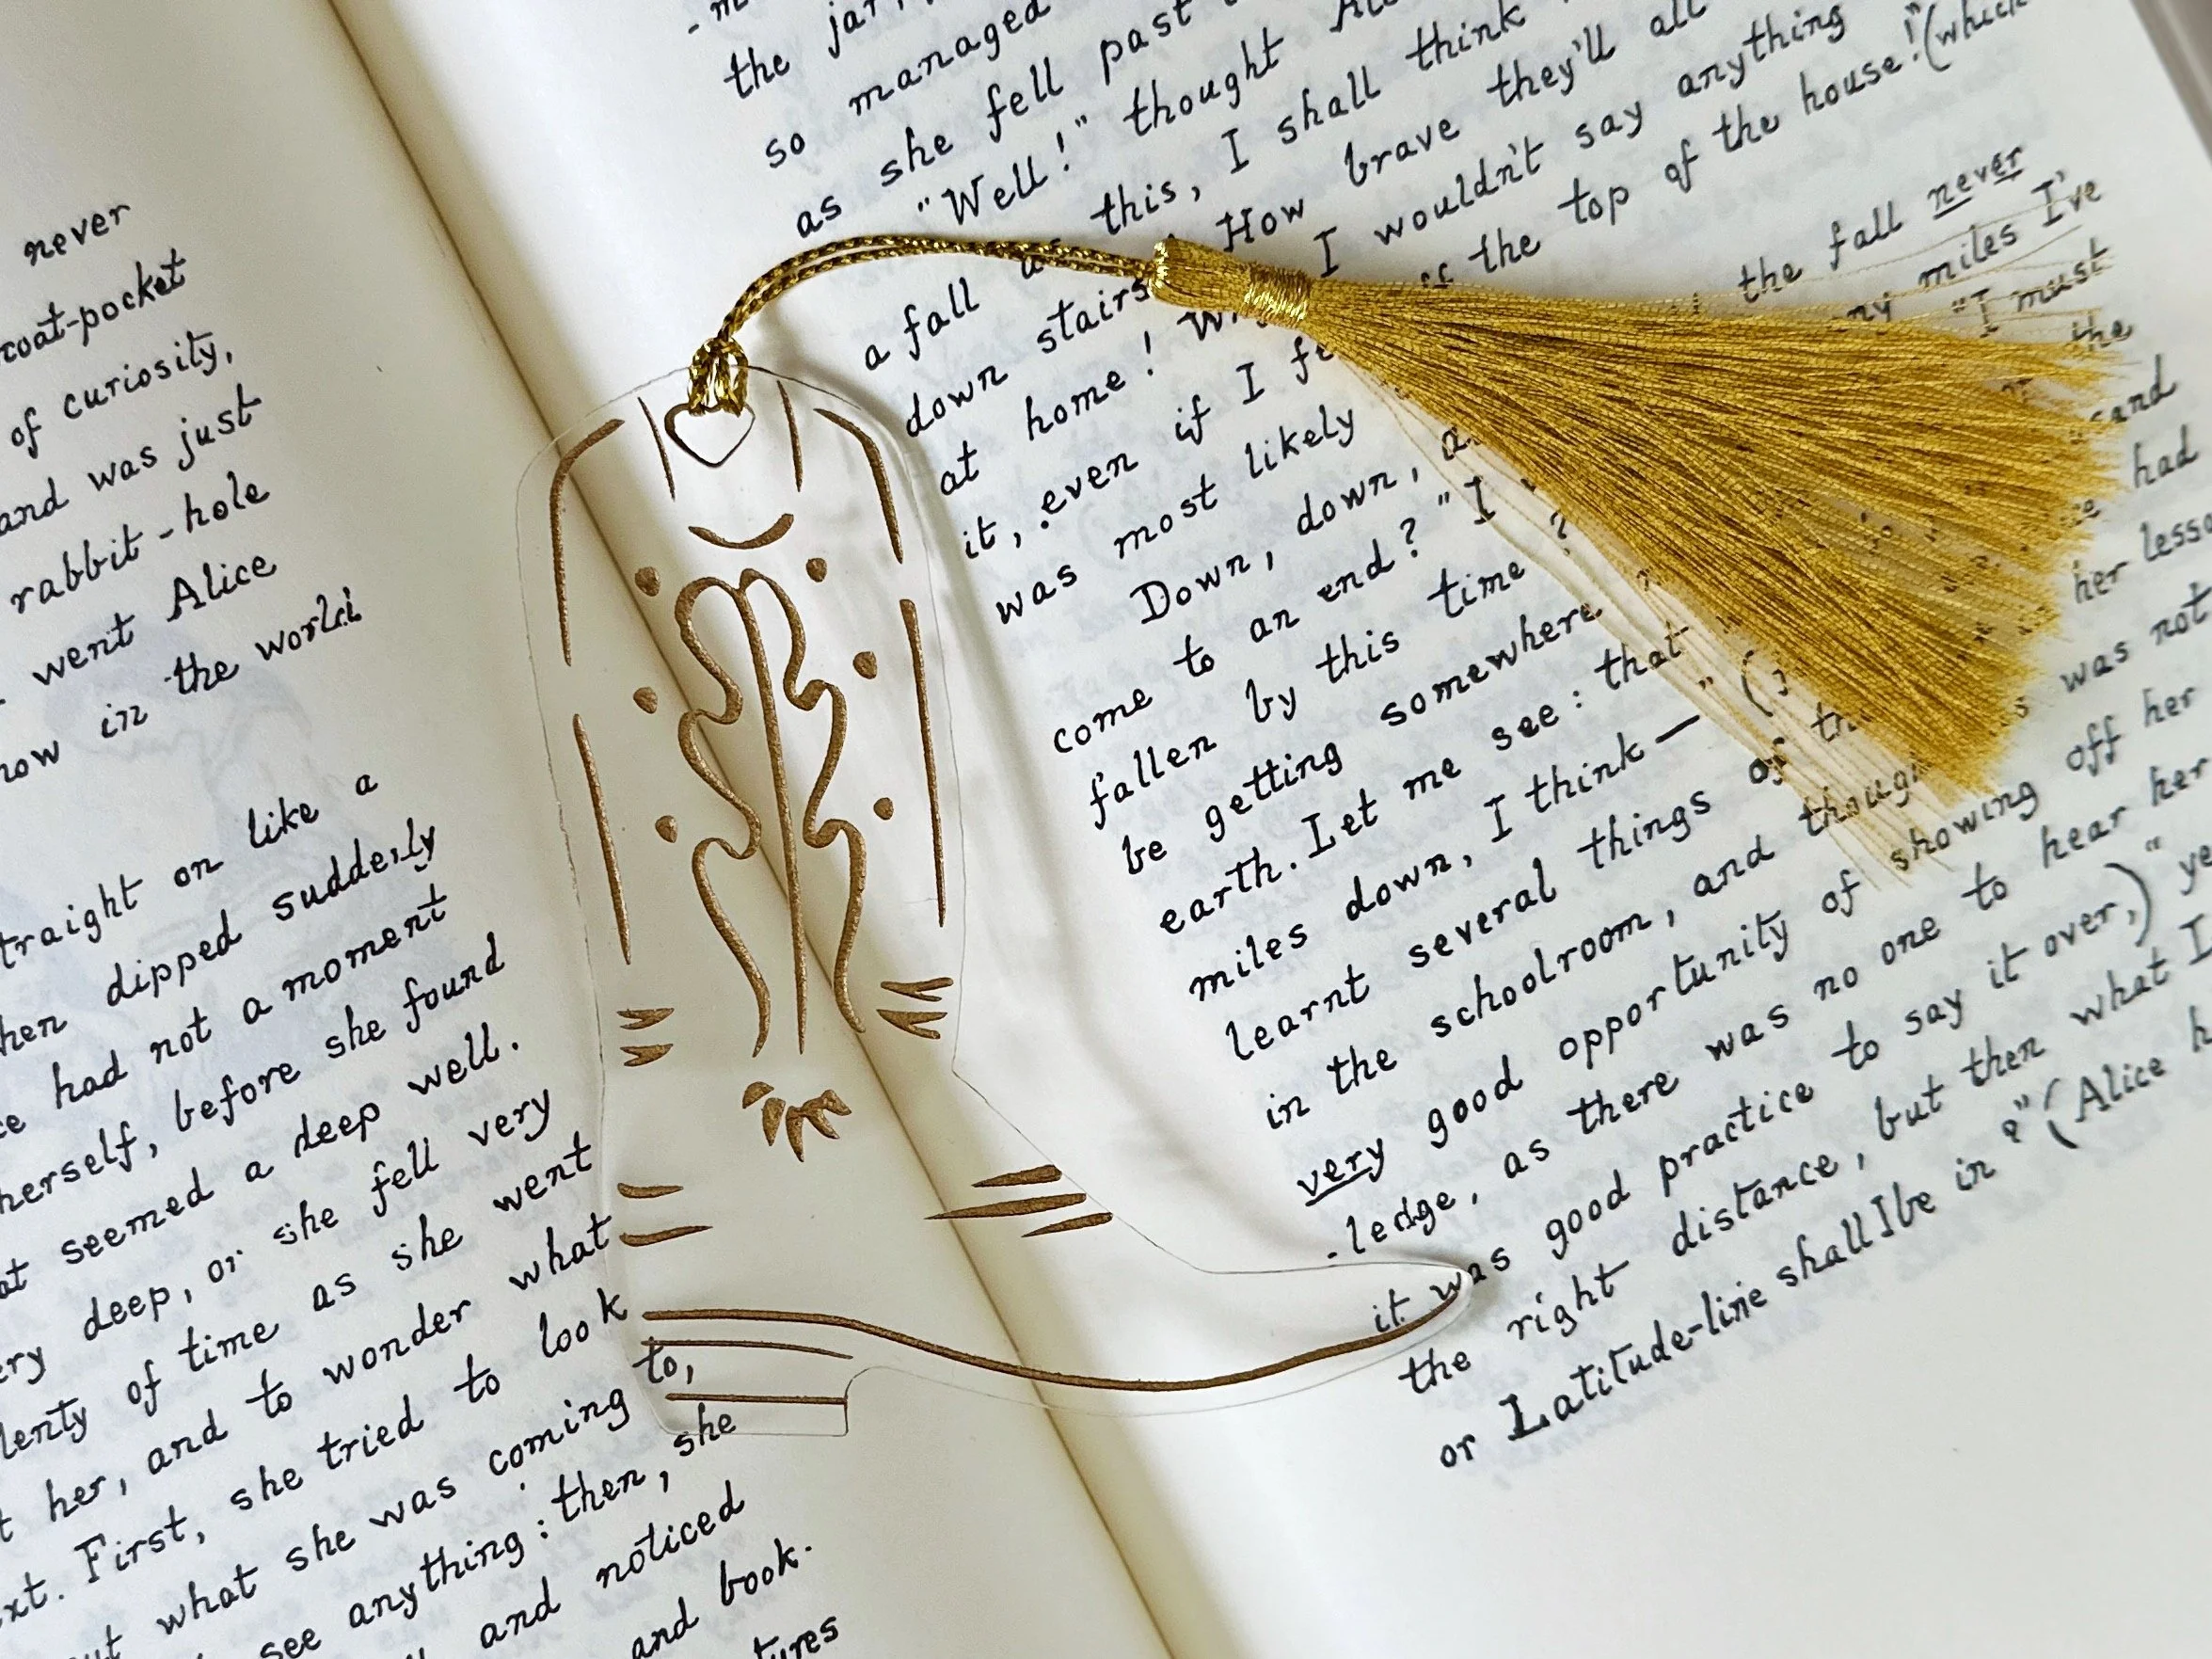 never
coat-pocket
of curiosity,
and was just
rabbit-hole
went Alice
how in the world
traight on like a
hen dipped suddenly
had not a moment
herself, before she found
at seemed a deep well.
ery deep, or she fell very
lenty of time as she went
her, and to wonder what
ext. First, she tried to look
what she was coming to,
see anything: then, she
and noticed
and book.
tures
the jar
so managed
as she fell past
"Well!" thought
a fall this, I shall think
down stairs How brave they'll all
at home! I wouldn't say anything
it, even if I the top of the house! (which
was most likely
Down, down, the fall never
come to an end? "I miles I've
fallen by this time? "I must
be getting somewhere the
earth. Let me see: that sand
miles down, I think— had
learnt several things of her
in the schoolroom, and though was not
very good opportunity of showing off her
-ledge, as there was no one to hear her
it was good practice to say it over,) "
the right distance, but then what
or Latitude-line shall I be in?" (Alice